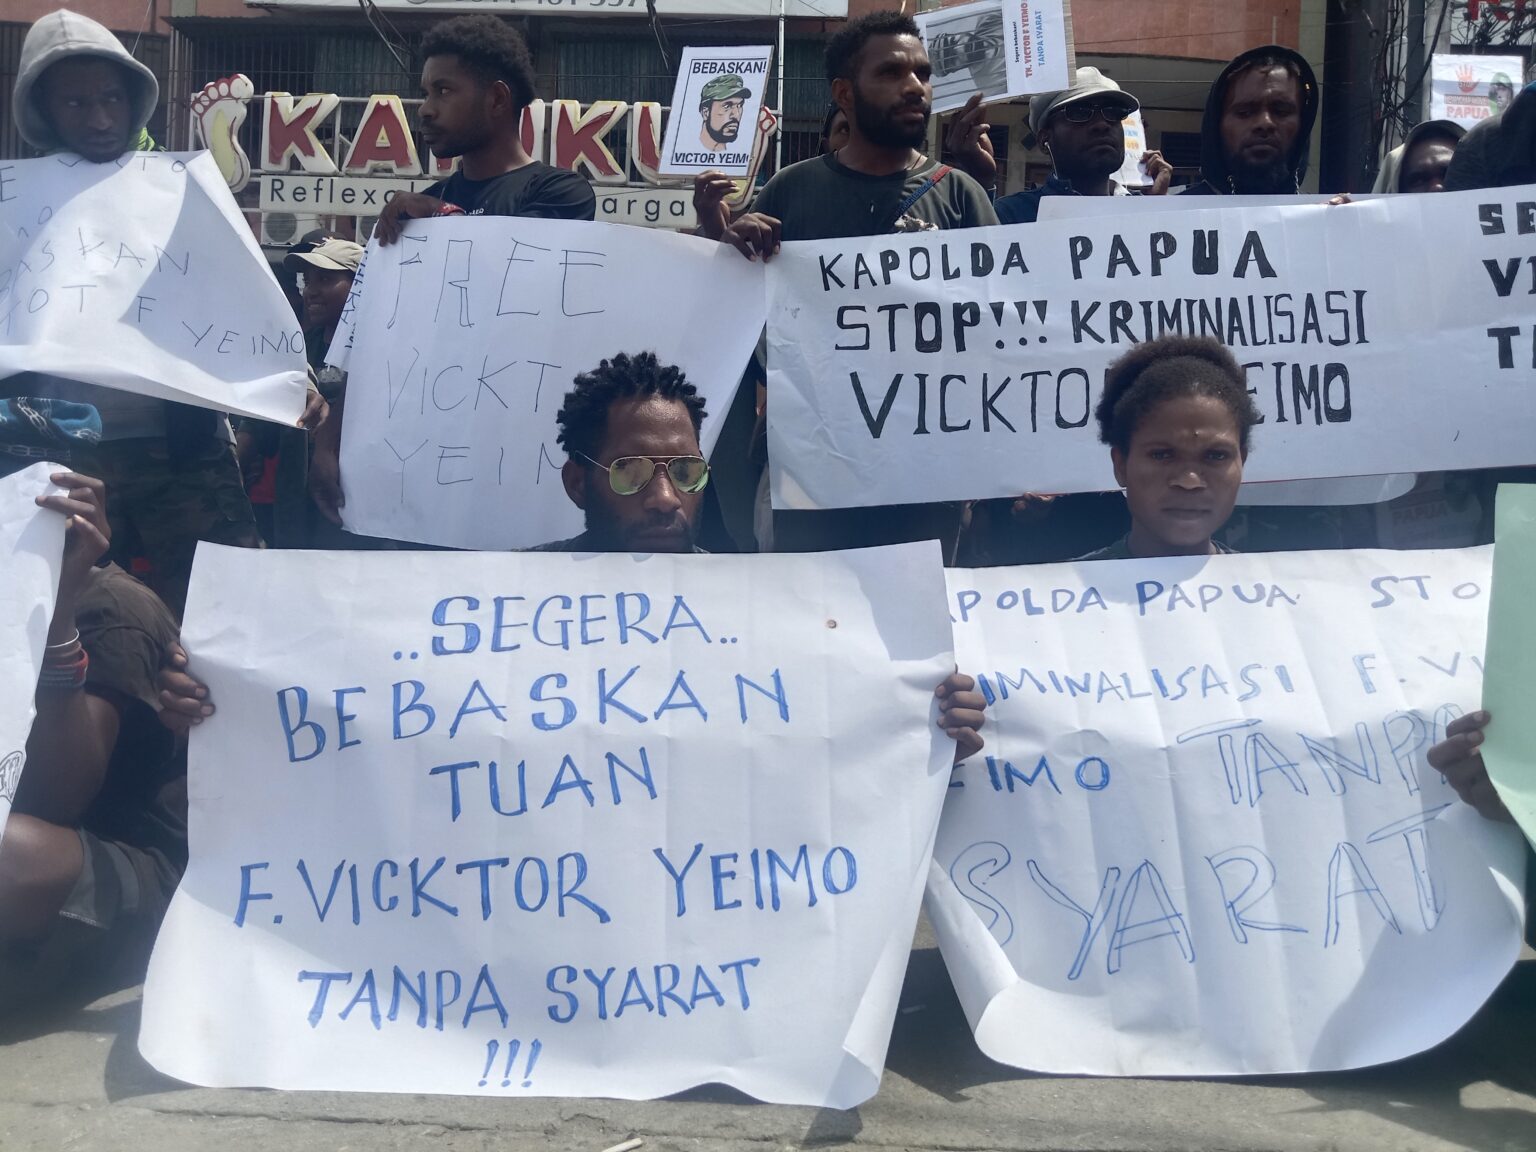 BEBASKAN!
VICTOR YEIMO
Segera bebaskan!
TN. VICTOR F YEIMO
TANPA SYARAT
PAPUA
Reflex
arga
BASKAN
F YEIMO
FREE
VICKT
YEIM
KAPOLDA PAPUA
STOP!!! KRIMINALISASI
VICKTO EIMO
..SEGERA..
BEBASKAN
TUAN
F.VICKTOR YEIMO
TANPA SYARAT
!!!
POLDA PAPUA STO
IMINALISASI F. VI
EIMO TANPA
SYARAT